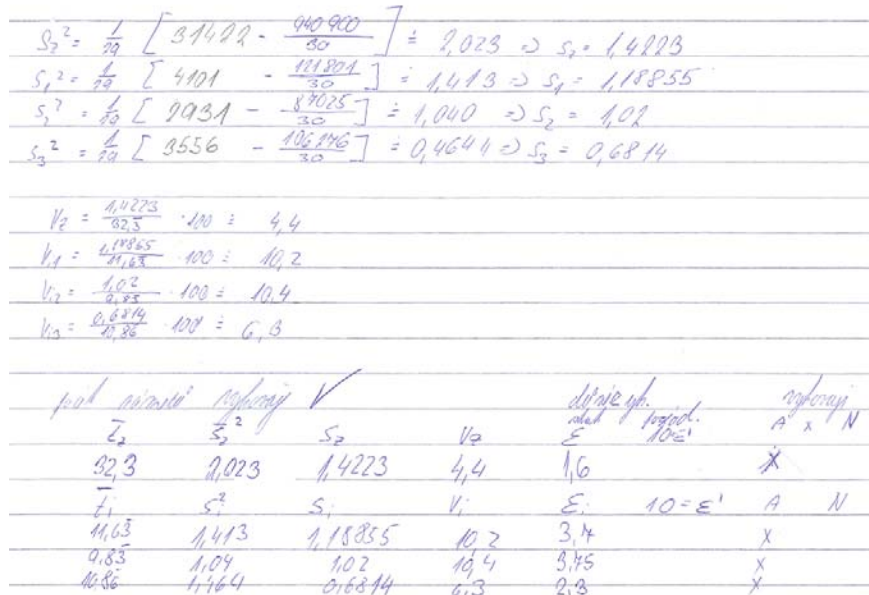 S_z² = 1/29 [ 31422 - 940900/30 ] ≐ 2,023 => S_z = 1,4223
S_1² = 1/29 [ 4101 - 121801/30 ] ≐ 1,413 => S_1 = 1,18855
S_2² = 1/29 [ 2931 - 87025/30 ] ≐ 1,040 => S_2 = 1,02
S_3² = 1/29 [ 3556 - 106276/30 ] ≐ 0,4644 => S_3 = 0,6814
V_z = 1,4223/32,3 · 100 ≐ 4,4
V_i1 = 1,18855/11,63 · 100 ≐ 10,2
V_i2 = 1,02/9,83 · 100 ≐ 10,4
V_i3 = 0,6814/10,86 · 100 ≐ 6,3
vyhovují ✓ vyhovují
S_z² S_z V_z ε 10=ε' A x N
32,3 2,023 1,4223 4,4 1,6 x
t_i S_i² S_i V_i ε_i 10=ε' A N
11,63 1,413 1,18855 10,2 3,7 x
9,83 1,04 1,02 10,4 3,75 x
10,86 1,464 0,6814 6,3 2,3 x